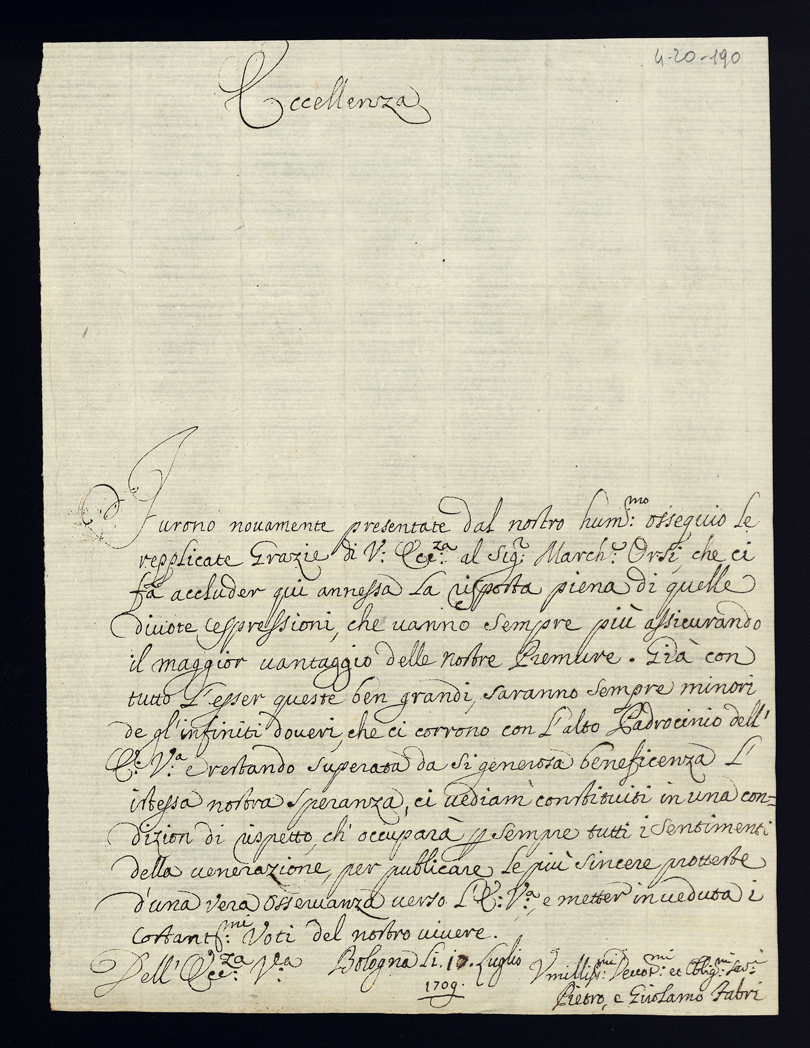 4-20-190
Eccellenza
Furono novamente presentate dal nostro hum:mo ossequio le
repplicate Grazie di V: Ecc:za al Sig:r March:e Orsi, che ci
fà accluder qui annessa la risposta piena di quelle
divote espressioni, che vanno sempre più assicurando
il maggior vantaggio delle nostre Premure. Già con
tutto L'esser queste ben grandi, saranno sempre minori
de gl'infiniti doveri, che ci corrono con L'alto Padrocinio dell'
E: V:a e restando superata da sì generosa beneficenza L'
istessa nostra speranza, ci vediam' constituiti in una con=
dizion di rispetto, ch' occuparà p sempre tutti i Sentimenti
della venerazione, per publicare le più sincere protteste
d'una vera osservanza verso L'E: V:a, e metter in veduta i
costantis:mi Voti del nostro vivere.
Dell' Ecc:za V:a Bologna Li. 10. Luglio
1709.
Vmilliss:mi Devot:mi et Oblig:mi Serv:i
Pietro, e Girolamo Fabri